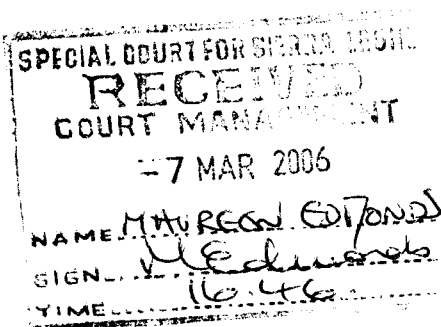 SPECIAL COURT FOR SIERRA LEONE
RECEIVED
COURT MANAGEMENT
-7 MAR 2006
NAME MAUREEN EDMONDS
SIGN
TIME 16.46